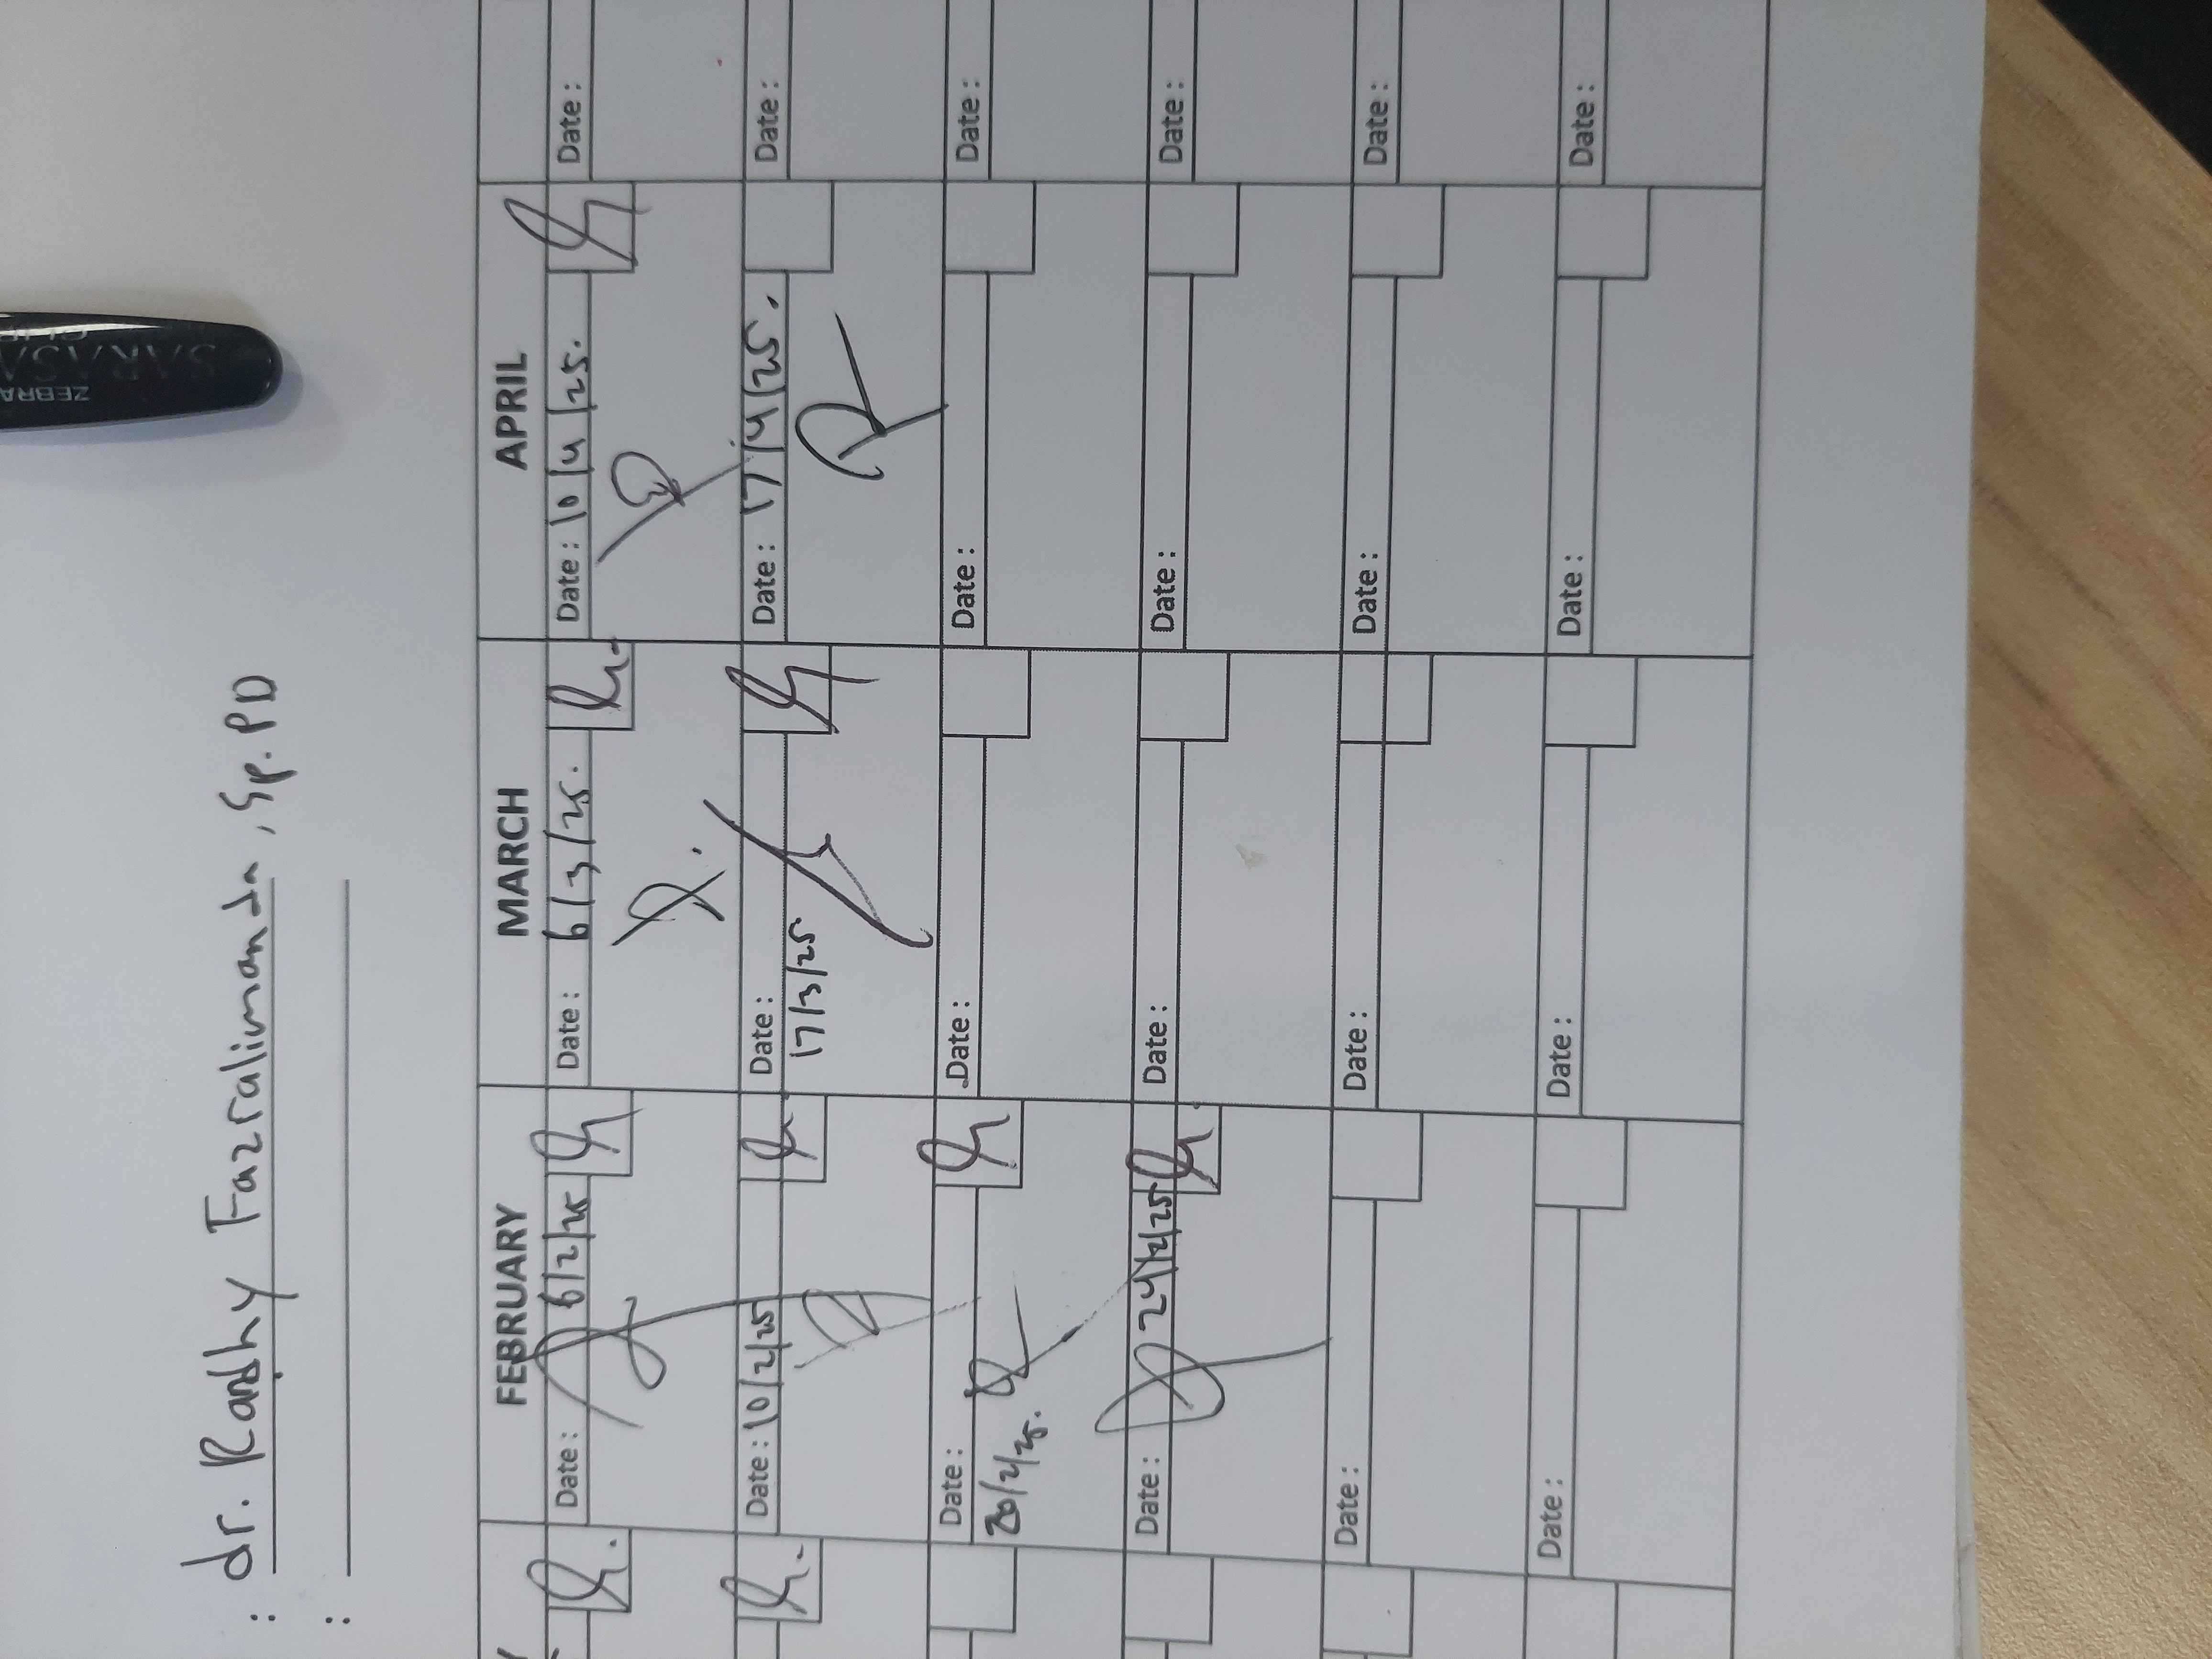 : dr. Randhy Fazralimanda, Sp. PD
:
FEBRUARY MARCH APRIL
Date: 6/2/25 Date: 6/3/25. Date: 10/4/25. Date:
Date: 10/2/25 Date: 17/3/25 Date: 17/4/25. Date:
Date: 20/2/25. Date: Date: Date:
Date: 24/2/25 Date: Date: Date:
Date: Date: Date: Date:
Date: Date: Date: Date:
ZEBRA
SARASA